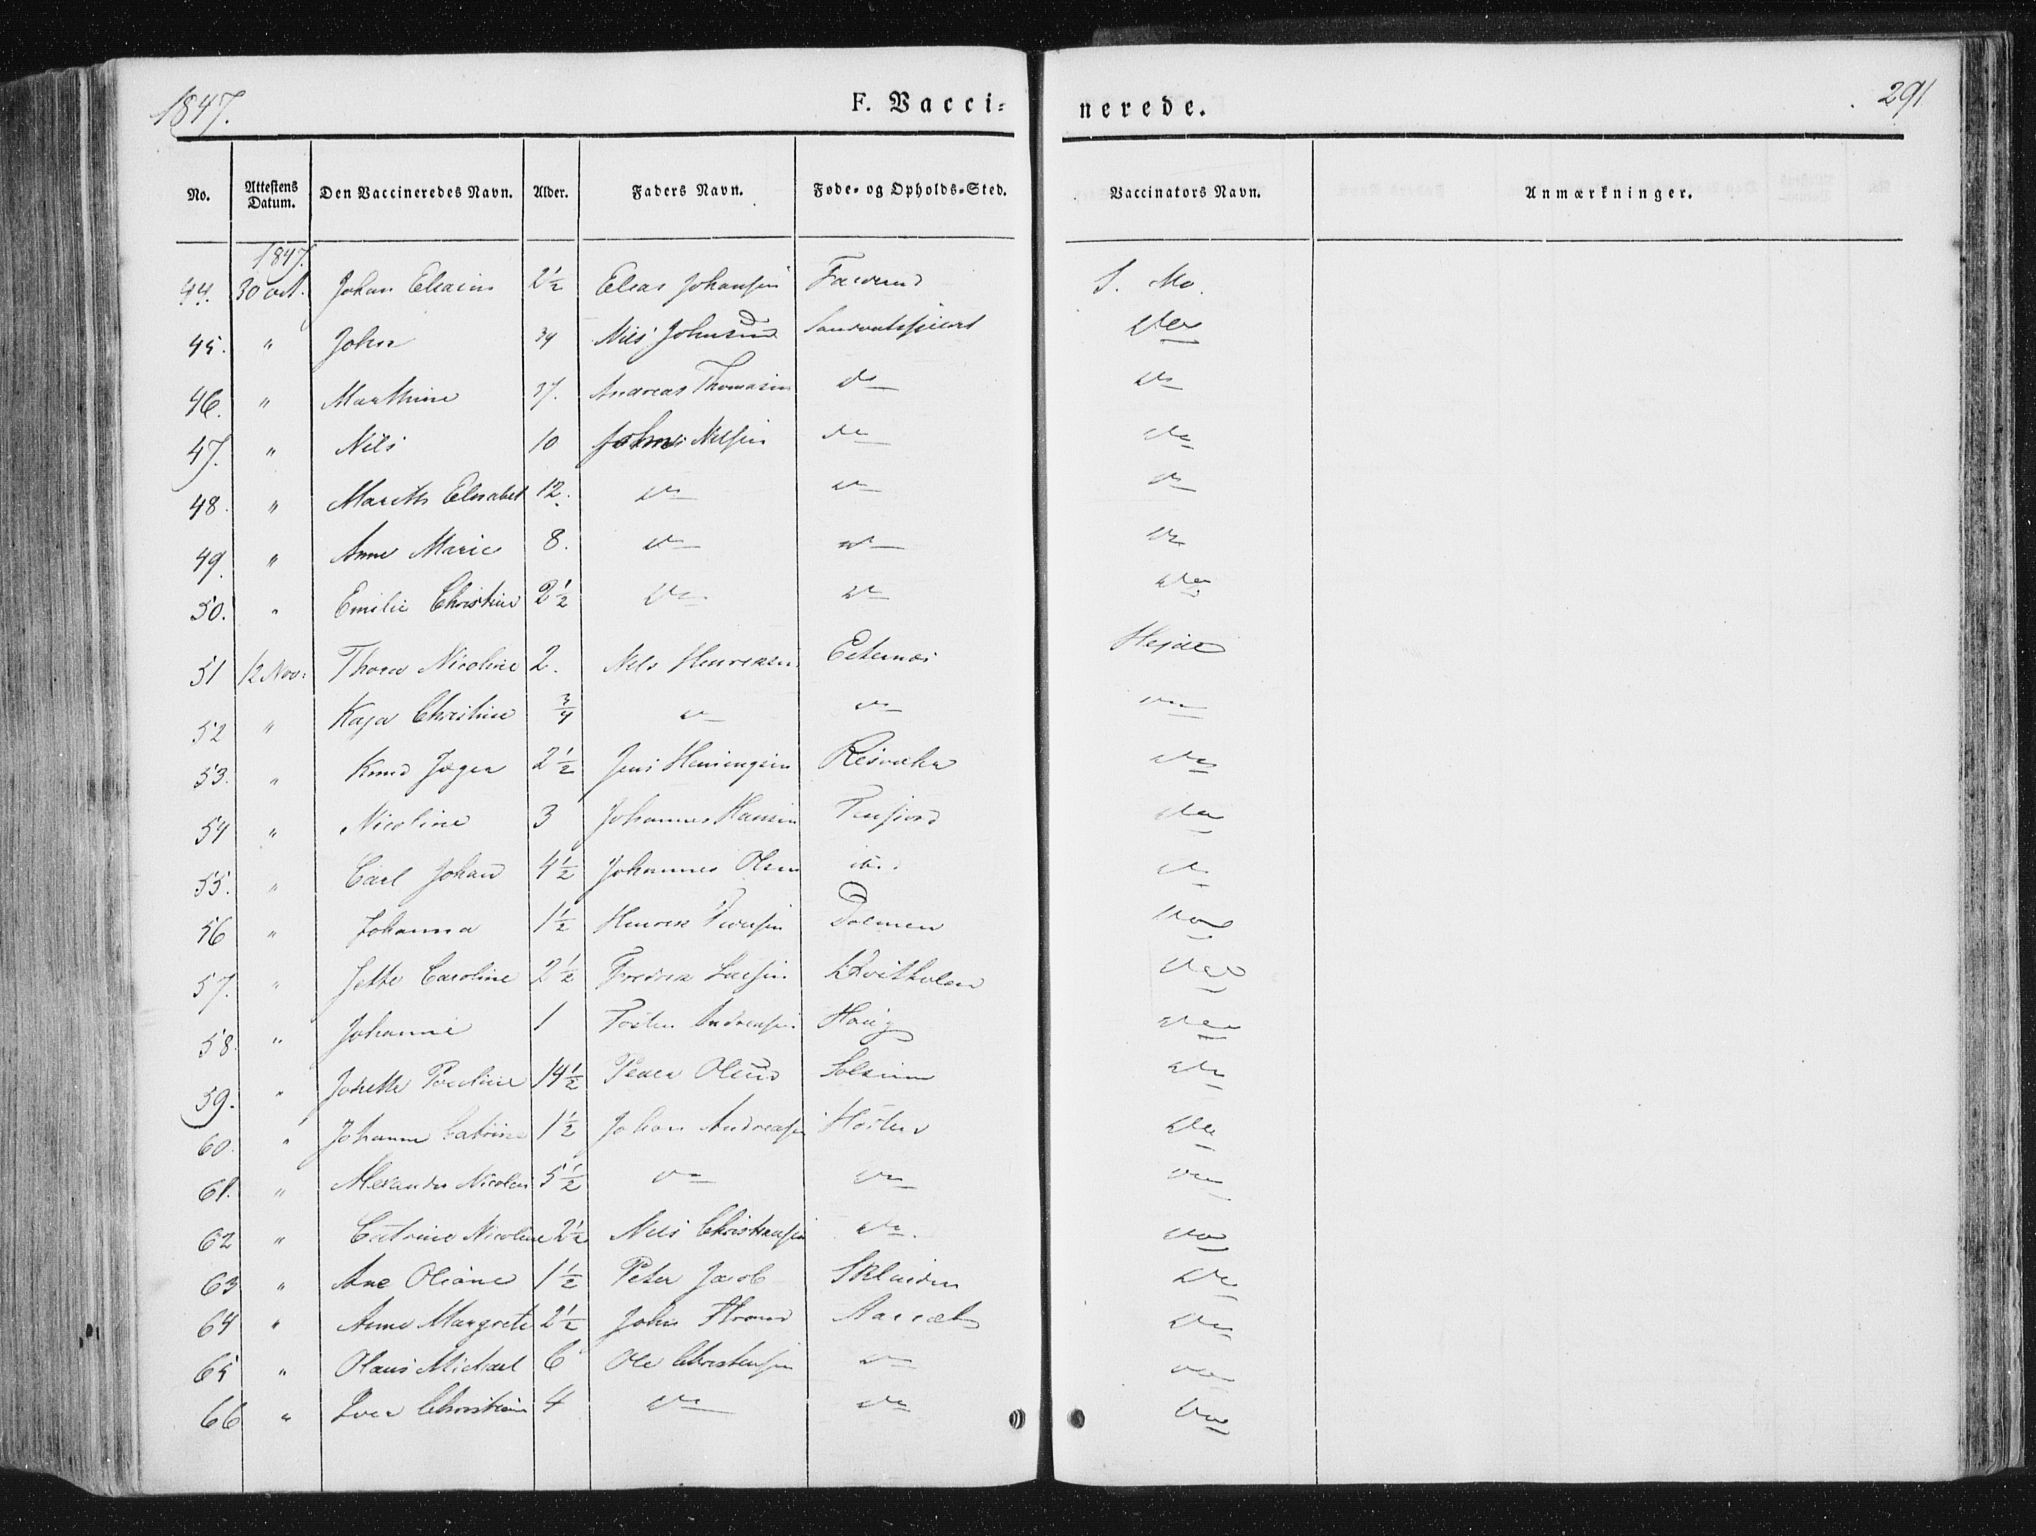 1847. F. Vacci= nerede. 291
No. Attestens Datum. Den Vaccineredes Navn. Alder. Faders Navn. Føde- og Opholds-Sted. Vaccinators Navn. Anmærkninger.
1847.
44. 30 oct. Johan Elsæus 2½ Elias Johansen S. Mo.
45. " John 34 Nils Johnsen do
46. " Marthine 37. Andreas Thomasen do do
47. " Nils 10 John Nilsen do do
48. " Mareth Elisabet 12. do do do
49. " Anne Marie 8. do do do
50. " Emilie Christine 2½ do do do
51 12 Nov: Thora Nicoline 2. Nils Henriksen Hejde
52 " Kaja Christine ¾ do do do
53. " Knud Jæger 2½ Jens Henningsen Resvika do
54 " Nicoline 3 Johannes Hansen Tenfjord do
55. " Carl Johan 4½ Johannes Olsen do do
56 " Johanna 1½ Henrik Pedersen Dolmen do
57. " Jette Caroline 2½ Fredrik Larsen Kvitholm do
58. " Johanne 1 Andreasen Haug do
59. " Josette Pauline 14½ Peder Olsen Solsem do
60. " Johanne Catrine 1½ Johan Andreasen Horten do
61. " Alexander Nicolai 5½ do do do
62 " Catrine Nicoline 2½ Nils Christensen do. do
63 " Ane Oliane 1½ Peter Jacob do
64 " Anne Margrete 2½ John Aarsæt do
65 " Olaus Michael 6 Ole Christensen do do
66 " Iver Christian 4 do do do